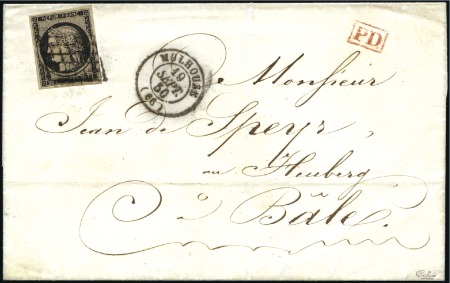 REPUB. FRANC.
MULHOUSE
19
SEPT.
50
(66)
PD
Monsieur
Jean de Speyr,
au Heuberg
à Bâle.